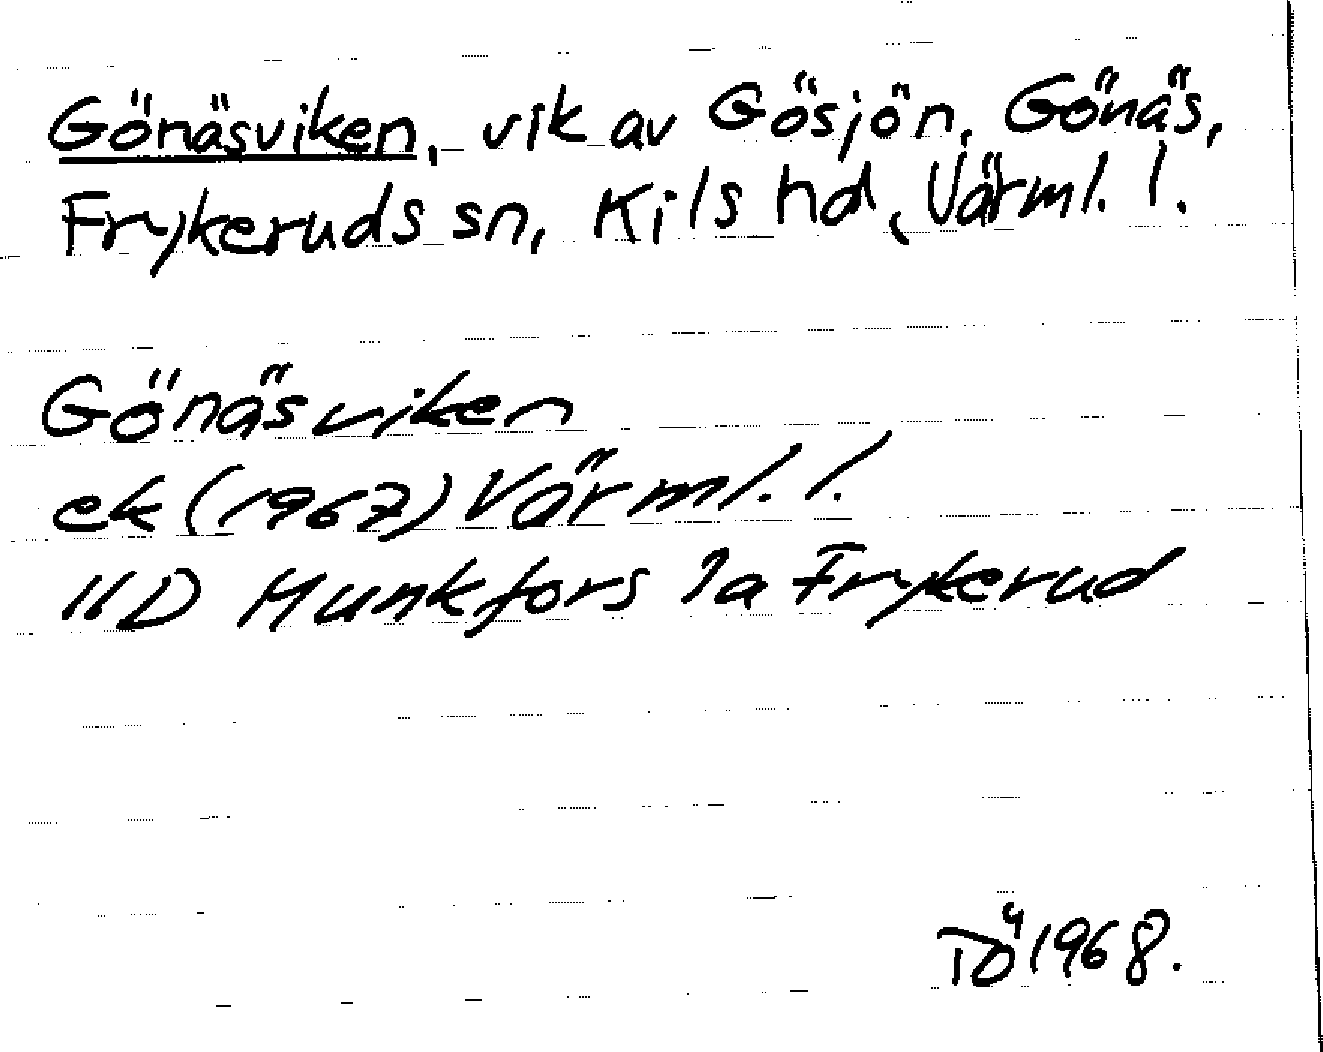 Gönäsviken, vik av Gösjön, Gönäs,
Frykeruds sn, Kils hd, Värml. l.
Gönäsviken
ek (1967) Värml. l.
11D Munkfors 7a Frykerud
TÖ 1968.